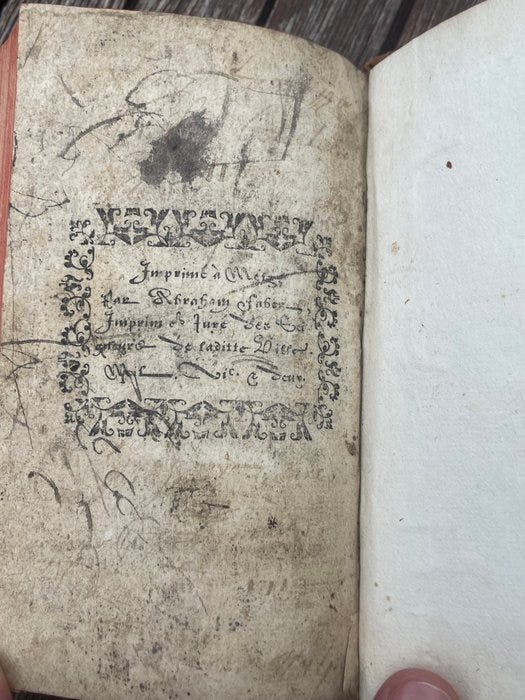 Imprimé à Metz,
Par Abraham Faber,
Imprim et Juré des Sei
gneurs de laditte Ville.
Mil. Vic. & Deux.